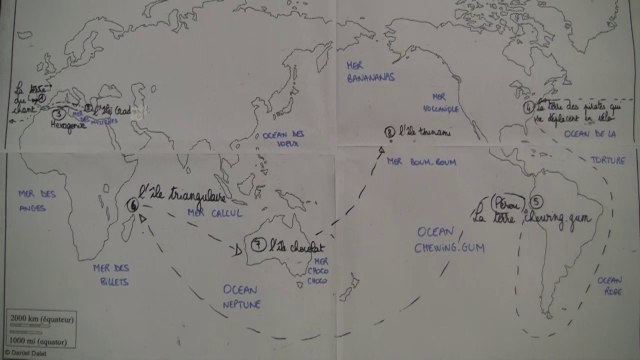 MER
BANANAS
La
qui
chant
3
Hexagone
l'île
MER
DES MYSTERES
OCEAN DES
VOEUX
MER
VOLCANIQUE
4 la terre des pirates qui
se déplacent en vélo
OCEAN DE LA
TORTURE
8 l'île tsunami
MER BOUM.BOUM
MER DES
ANGES
6 l'île triangulaire
MER CALCUL
7 l'île chocolat
MER
CHOCO
CHOCO
MER DES
BILLETS
OCEAN
NEPTUNE
OCEAN
CHEWING.GUM
(Pérou) 5
La terre chewing.gum
OCEAN
ROSE
2000 km (équateur)
1000 mi (equator)
© Daniel Dalet